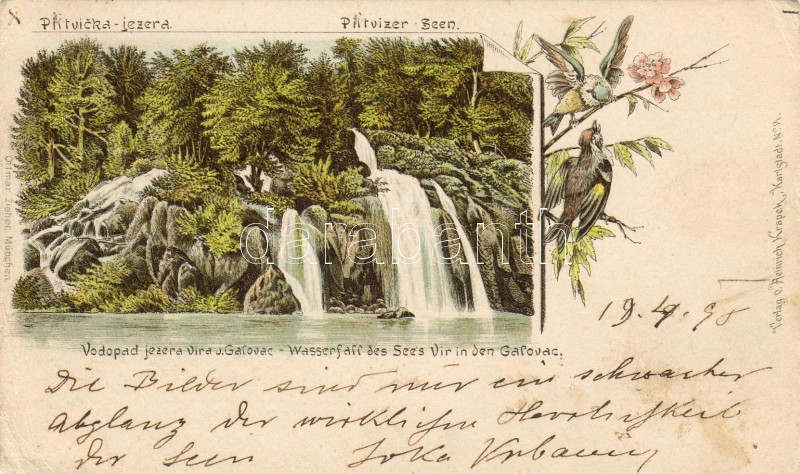 Plitvička-jezera.
Plitvizer-Seen.
Ottmar Zieher, München.
darabanth
Verlag v. Heinrich Krapek, Karlstadt. No
19.4.98
Vodopad jezera Vira u Galovac - Wasserfall des See's Vir in den Galovac.
Die Bilder sind nur ein schwacher
Abglanz der wirklichen Herrlichkeit
der Seen